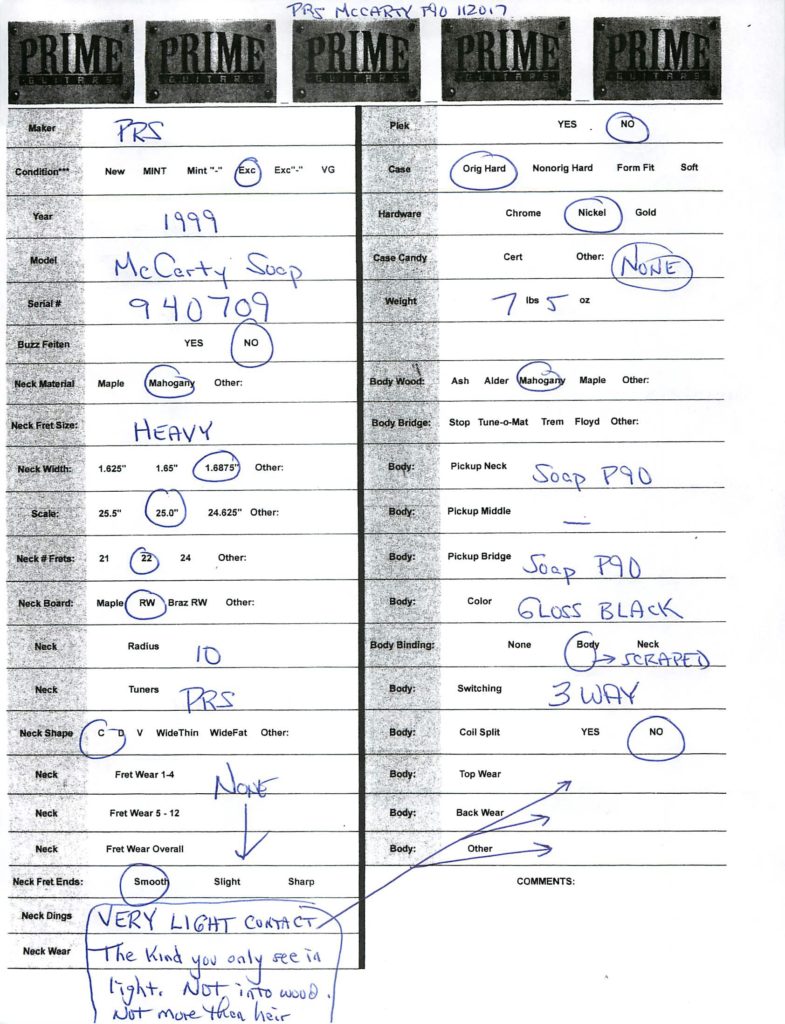 PRS McCARTY P90 112017
PRIME GUITARS PRIME GUITARS PRIME GUITARS PRIME GUITARS PRIME GUITARS
Maker PRS
Condition*** New MINT Mint "-" Exc Exc"-" VG
Year 1999
Model McCarty Soap
Serial # 940709
Buzz Feiten YES NO
Neck Material Maple Mahogany Other:
Neck Fret Size: HEAVY
Neck Width: 1.625" 1.65" 1.6875" Other:
Scale: 25.5" 25.0" 24.625" Other:
Neck # Frets: 21 22 24 Other:
Neck Board: Maple RW Braz RW Other:
Neck Radius 10
Neck Tuners PRS
Neck Shape C D V WideThin WideFat Other:
Neck Fret Wear 1-4
NONE
Neck Fret Wear 5 - 12
Neck Fret Wear Overall
Neck Fret Ends: Smooth Slight Sharp
Neck Dings VERY LIGHT CONTACT
Neck Wear The kind you only see in
light. Not into wood.
Not more than hair
Plek YES NO
Case Orig Hard Nonorig Hard Form Fit Soft
Hardware Chrome Nickel Gold
Case Candy Cert Other: NONE
Weight 7 lbs 5 oz
Body Wood: Ash Alder Mahogany Maple Other:
Body Bridge: Stop Tune-o-Mat Trem Floyd Other:
Body: Pickup Neck Soap P90
Body: Pickup Middle —
Body: Pickup Bridge Soap P90
Body: Color GLOSS BLACK
Body Binding: None Body Neck
→ SCRAPED
Body: Switching 3 WAY
Body: Coil Split YES NO
Body: Top Wear
Body: Back Wear
Body: Other
COMMENTS: